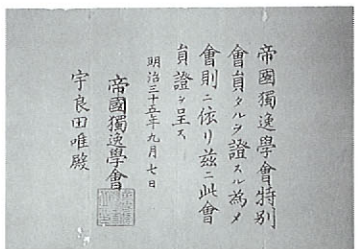 帝國獨逸學會特別
會員タルヲ證スル為メ
會則ニ依リ茲ニ此會
員證ヲ呈ス
明治三十五年九月七日
帝國獨逸學會
宇良田唯殿